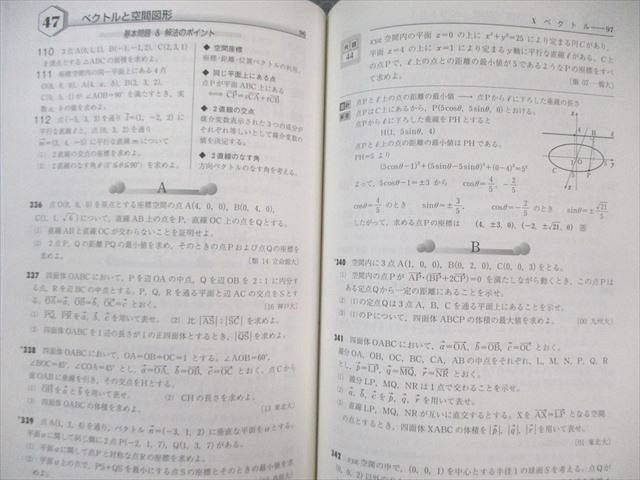 47 ベクトルと空間図形
基本問題 & 解法のポイント
96
110 3点A(3, 1, 1), B(-1, -1, 2), C(2, 3, 1)
を頂点とする△ABCの面積を求めよ。
111 座標空間内の同一平面上にある4点
∠AOB=90°を満たすとき，実
数a, bの値を求めよ。
112 点(-5, 3, 3)を通り l=(1, -2, 2)に
平行な直線lと，点(0, 3, 2)を通り
m=(3, -4, -5)に平行な直線mについて
(1) 2直線の交点の座標を求めよ。
(2) 2直線のなす角θ(0°≦θ≦90°)を求めよ。
◆ 空間座標
座標・距離・位置ベクトルの利用。
◆ 同じ平面上にある点
点Pが平面ABC上にある
⟺ CP=sCA+tCB
◆ 2直線の交点
媒介変数表示された3つの成分が
それぞれ等しいとして媒介変数の
値を決定する。
◆ 2直線のなす角
方向ベクトルのなす角を考える。
A
336 点O(0, 0, 0)を原点とする座標空間の点A(4, 0, 0), B(0, 4, 0),
C(1, 1, √6)について，直線AB上の点をP，直線OC上の点をQとする。
(1) 直線ABと直線OCが交わらないことを証明せよ。
(2) 2点P, Qの距離PQの最小値を求め，そのときの点Pおよび点Qの座標を
求めよ。
[類 14 立命館大]
337 四面体OABCにおいて，Pを辺OAの中点，Qを辺OBを2:1に内分す
る点，Rを辺BCの中点とする。P, Q, Rを通る平面と辺ACの交点をSとす
る。OA=a, OB=b, OC=c とおく。
[16 神戸大]
(1) PQ, PRをa, b, cを用いて表せ。
(2) 比 |AS|:|SC| を求めよ。
(3) 四面体OABCを1辺の長さが1の正四面体とするとき，|QS|を求めよ。
*338 四面体OABCにおいて，OA=OB=OC=1 とする。∠AOB=60°,
∠BOC=45°, ∠COA=45° とし，a=OA, b=OB, c=OC とおく。点Cから
面OABに垂線を引き，その交点をHとする。
(1) OHをaとbを用いて表せ。
(2) CHの長さを求めよ。
(3) 四面体OABCの体積を求めよ。
[13 東北大]
*339 点A(1, 2, 4)を通り，ベクトル n=(-3, 1, 2)に垂直な平面をαとする。
平面αに関して同じ側に2点P(-2, 1, 7), Q(1, 3, 7)がある。
(1) 平面αに関して点Pと対称な点Rの座標を求めよ。
(2) 平面α上の点で，PS+QSを最小にする点Sの座標とそのときの最小値を求
X ベクトル—97
例題
44
xyz空間内の平面 z=0 の上に x²+y²=25 により定まる円Cがあり，
平面 z=4 の上に x=1 により定まるy軸に平行な直線lがある。C上
の点Pで，l上の点との距離の最小値が5であるようなPの座標をすべ
て求めよ。
[類 07 一橋大]
点Pとl上の点の距離の最小値 → 点Pからlに下ろした垂線の長さ
解答
点PはC上にあるから，P(5cosθ, 5sinθ, 0)とおける。
点Pからlに下ろした垂線をPHとすると
H(1, 5sinθ, 4)
点Pとl上の点の距離の最小値はPHである。
PH=5 より
(5cosθ-1)²+(5sinθ-5sinθ)²+(0-4)²=5²
よって，5cosθ-1=±3 から cosθ=4/5, -2/5
cosθ=4/5 のとき sinθ=±3/5, cosθ=-2/5 のとき sinθ=±√21/5
したがって，求める点Pの座標は (4, ±3, 0), (-2, ±√21, 0) 答
B
*340 空間内に3点A(1, 0, 0), B(0, 2, 0), C(0, 0, 3)をとる。
(1) 空間内の点Pが AP・(BP+2CP)=0 を満たしながら動くとき，この点Pは
ある定点Qから一定の距離にあることを示せ。
(2) (1)の定点Qは3点A, B, Cを通る平面上にあることを示せ。
(3) (1)のPについて，四面体ABCPの体積の最大値を求めよ。
[00 九州大]
341 四面体OABCにおいて，a=OA, b=OB, c=OC とおく。
線分OA, OB, OC, BC, CA, ABの中点をそれぞれ，L, M, N, P, Q, R
とし，p=LP, q=MQ, r=NR とおく。
(1) 線分LP, MQ, NRは1点で交わることを示せ。
(2) a, b, cをp, q, rを用いて表せ。
(3) 直線LP, MQ, NRが互いに直交するとする。Xを AX=LP となる空間
の点とするとき，四面体XABCの体積を|p|, |q|, |r|を用いて表せ。
[01 東北大]
342 xyz空間の中で，(0, 0, 1)を中心とする半径1の球面Sを考える。点Q